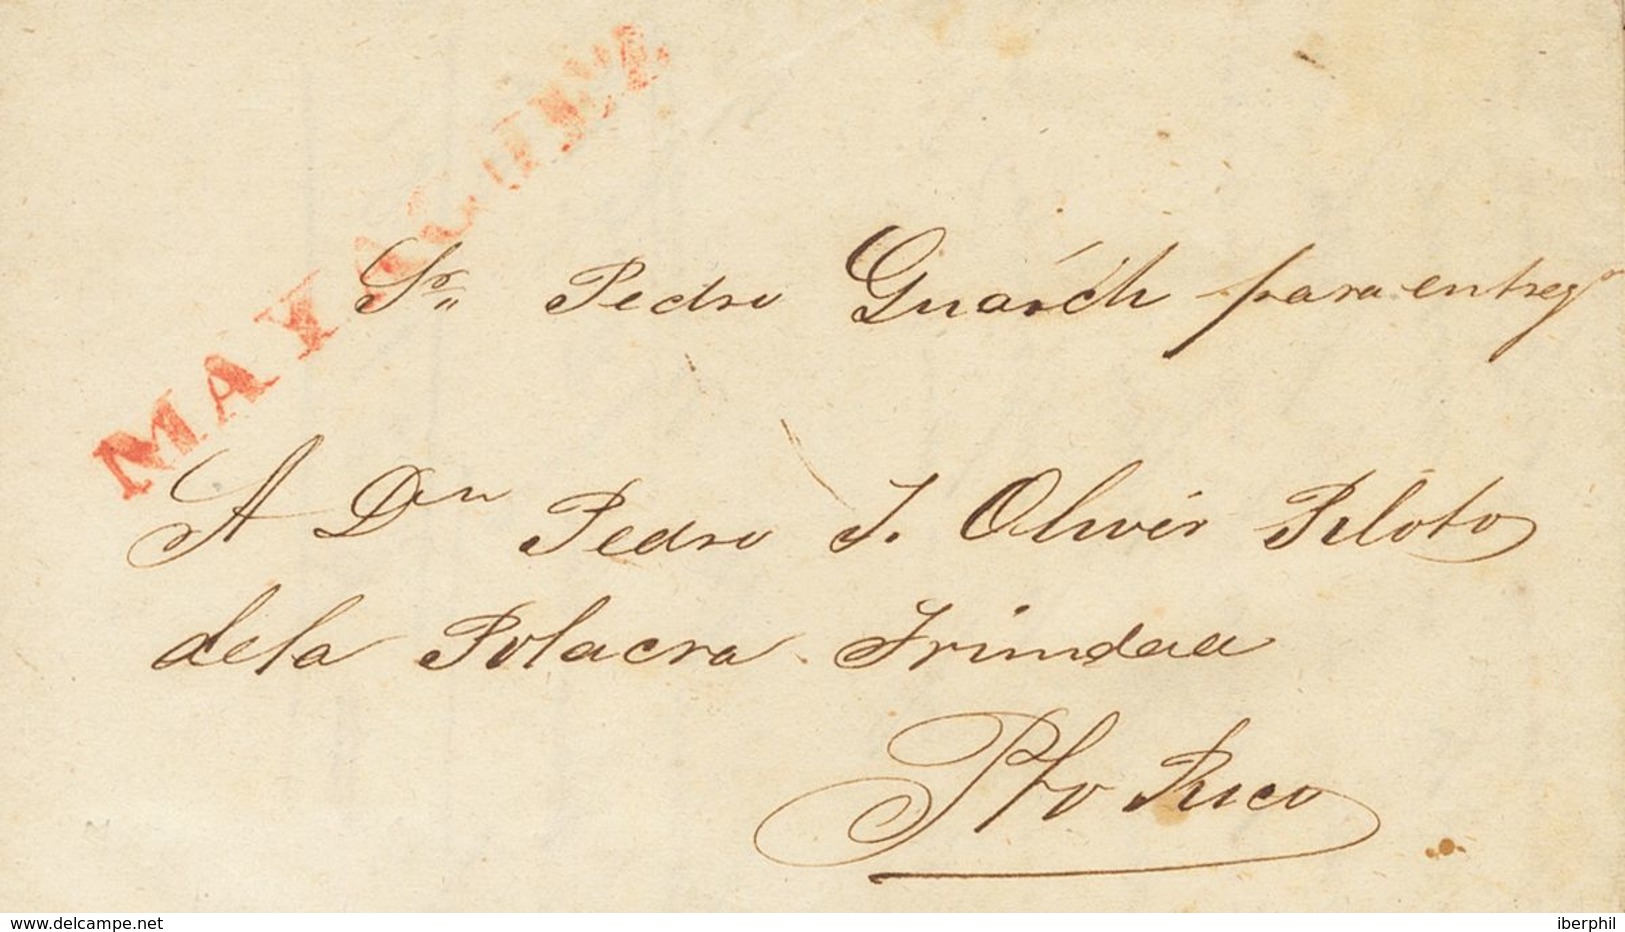 MAYAGUEZ.
Sr. Pedro Guarch para entregr
A Dn Pedro J. Oliver Piloto
de la Polacra Trindaa
Pto Rico
www.delcampe.net
iberphil